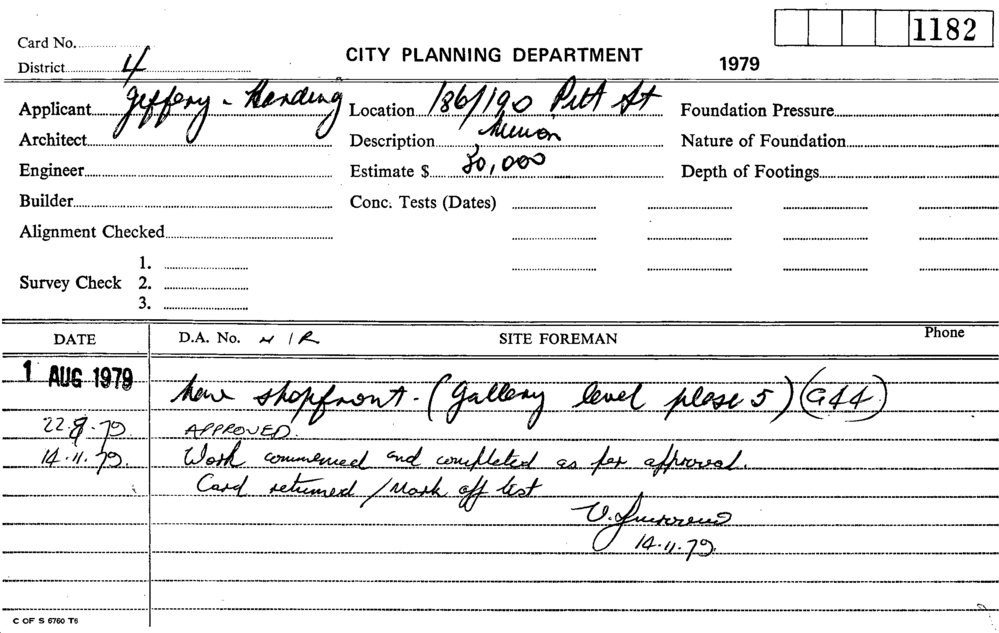 1182
Card No.
CITY PLANNING DEPARTMENT
1979
District 4
Applicant Jeffery - Harding Location 186/190 Pitt St Foundation Pressure
Architect Description Nature of Foundation
Engineer Estimate $ 30,000 Depth of Footings
Builder Conc. Tests (Dates)
Alignment Checked
1.
Survey Check 2.
3.
DATE D.A. No. N/R SITE FOREMAN Phone
1 AUG 1979
New shopfront - (Gallery level phase 5) (G44)
22.8.79 APPROVED.
14.11.79. Work commenced and completed as per approval.
Card returned / Mark off list
V.
14.11.79.
C OF S 6760 T6